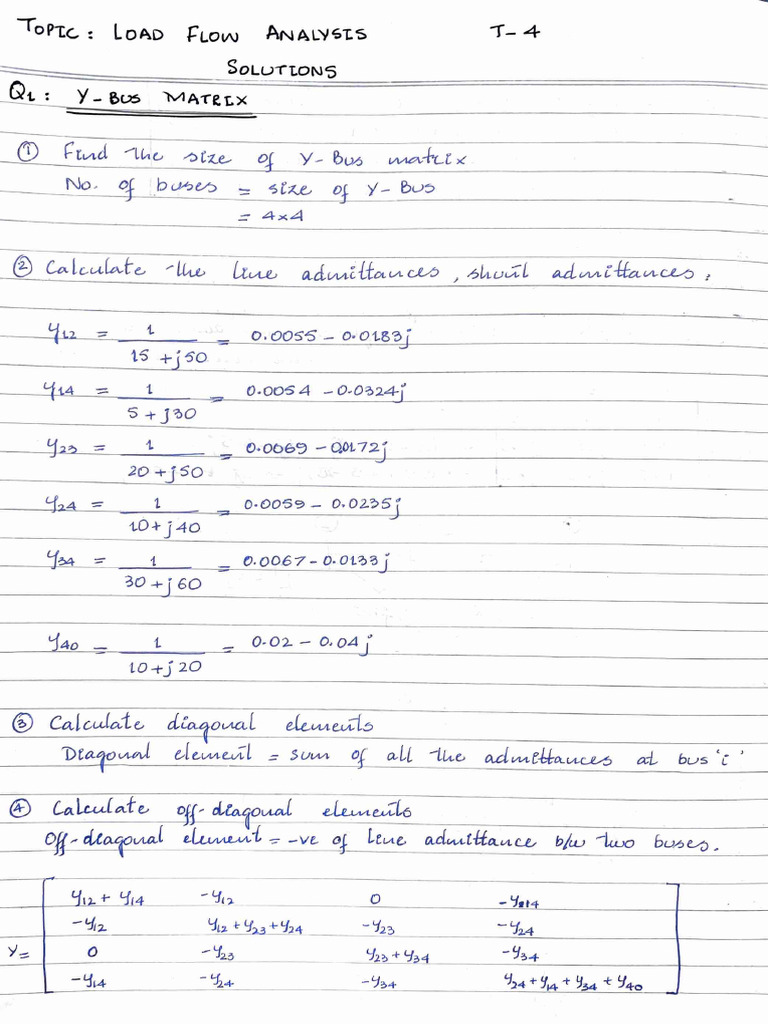 TOPIC: LOAD FLOW ANALYSIS T-4
SOLUTIONS
Q1: Y-BUS MATRIX
① Find the size of Y-Bus matrix
No. of buses = size of Y-Bus
= 4×4
② Calculate the line admittances, shunt admittances:
y12 = 1/(15 + j50) = 0.0055 - 0.0183j
y14 = 1/(5 + j30) = 0.0054 - 0.0324j
y23 = 1/(20 + j50) = 0.0069 - 0.0172j
y24 = 1/(10 + j40) = 0.0059 - 0.0235j
y34 = 1/(30 + j60) = 0.0067 - 0.0133j
y40 = 1/(10 + j20) = 0.02 - 0.04j
③ Calculate diagonal elements
Diagonal element = sum of all the admittances at bus 'i'
④ Calculate off-diagonal elements
Off-diagonal element = -ve of line admittance b/w two buses.
y12 + y14 -y12 0 -y14
-y12 y12 + y23 + y24 -y23 -y24
Y = 0 -y23 y23 + y34 -y34
-y14 -y24 -y34 y24 + y14 + y34 + y40